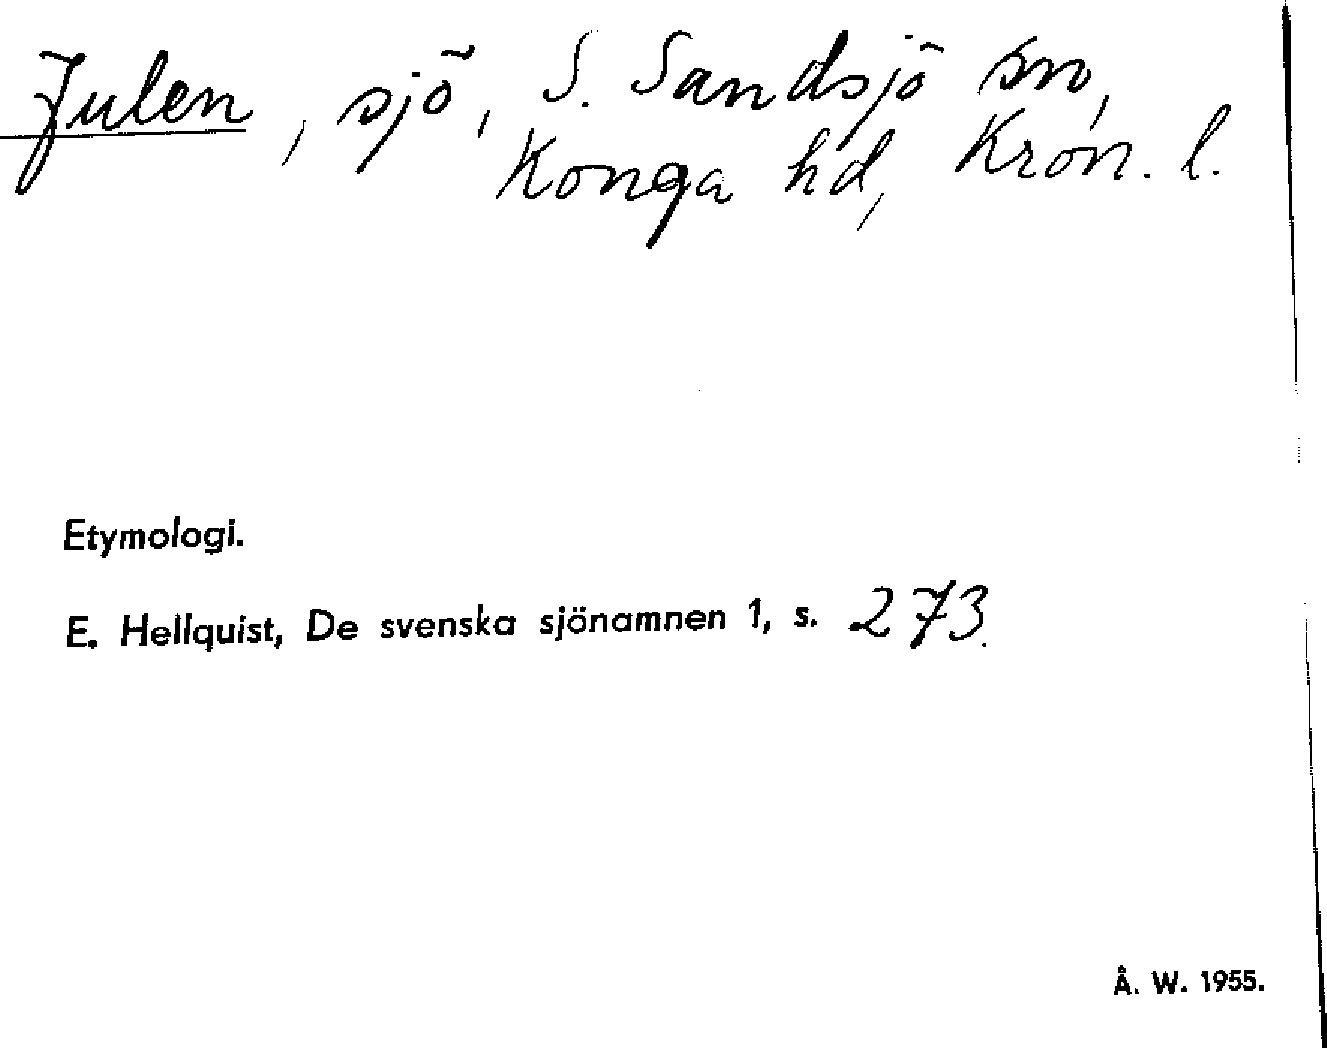 Julen, sjö, S. Sandsjö sn,
Konga hd, Kron. l.
Etymologi.
E. Hellquist, De svenska sjönamnen 1, s. 273.
Å. W. 1955.